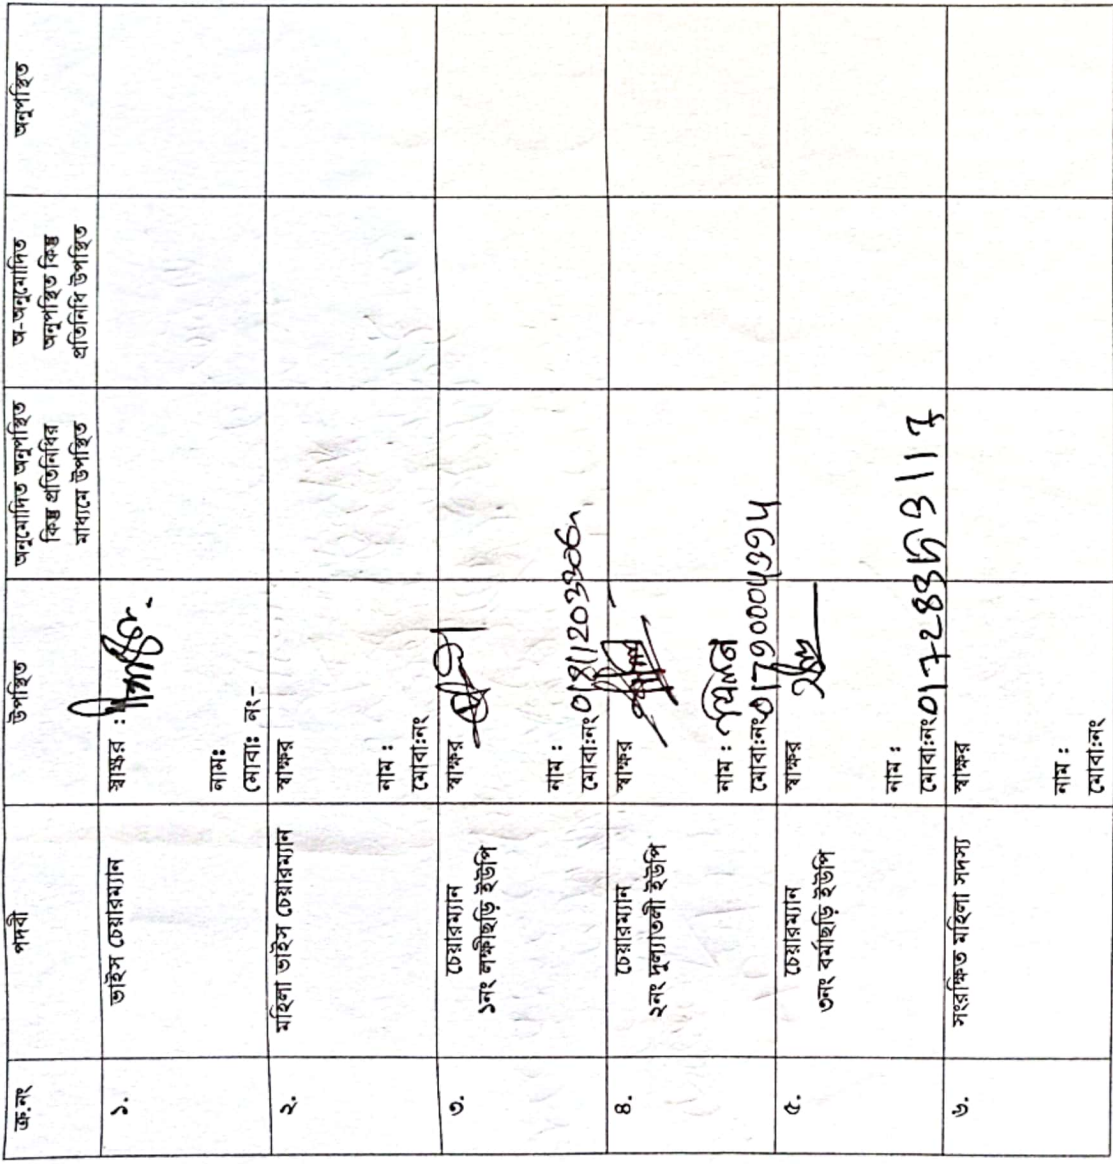 ক্র.নং
পদবী
উপস্থিত
অনুমোদিত অনুপস্থিত
কিন্তু প্রতিনিধির
মাধ্যমে উপস্থিত
অ-অনুমোদিত
অনুপস্থিত কিন্তু
প্রতিনিধি উপস্থিত
অনুপস্থিত
১.
ভাইস চেয়ারম্যান
স্বাক্ষর :
নাম:
মোবা: নং-
২.
মহিলা ভাইস চেয়ারম্যান
স্বাক্ষর
নাম :
মোবা:নং
৩.
চেয়ারম্যান
১নং লক্ষীছড়ি ইউপি
স্বাক্ষর
নাম :
মোবা:নং
৪.
চেয়ারম্যান
২নং দুল্যাতলী ইউপি
স্বাক্ষর
নাম :
মোবা:নং
৫.
চেয়ারম্যান
৩নং বর্মাছড়ি ইউপি
স্বাক্ষর
নাম :
মোবা:নং
৬.
সংরক্ষিত মহিলা সদস্য
স্বাক্ষর
নাম :
মোবা:নং